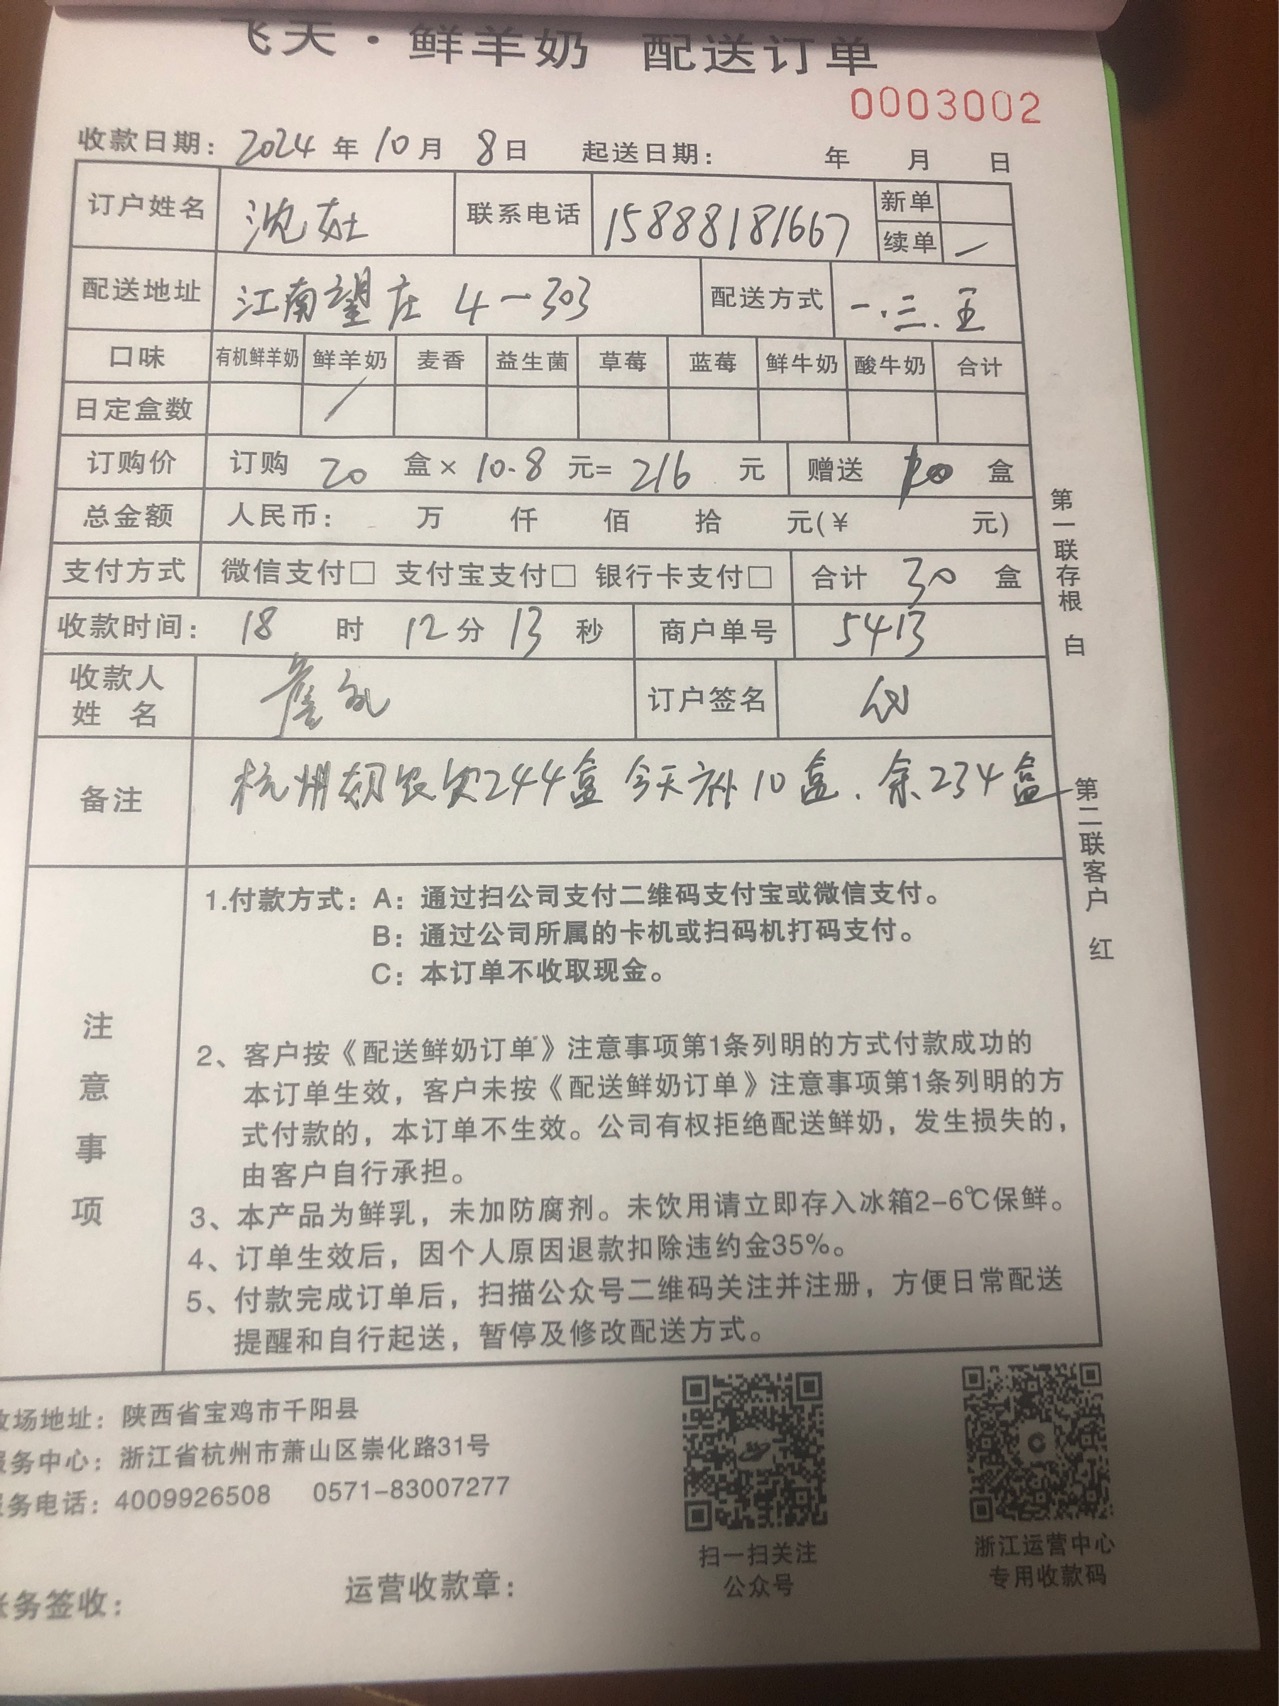 飞天·鲜羊奶 配送订单
0003002
收款日期：2024年10月8日 起送日期： 年 月 日
订户姓名 沈 联系电话 15888181667 新单
续单 一
配送地址 江南望庄 4-303 配送方式 一.三.五
口味 有机鲜羊奶 鲜羊奶 麦香 益生菌 草莓 蓝莓 鲜牛奶 酸牛奶 合计
日定盒数 /
订购价 订购 20 盒× 10.8 元= 216 元 赠送 10 盒
总金额 人民币： 万 仟 佰 拾 元(¥ 元)
支付方式 微信支付□ 支付宝支付□ 银行卡支付□ 合计 30 盒
收款时间： 18 时 12分 13 秒 商户单号 5413
收款人
姓 名 詹 订户签名
备注 杭州 欠244盒 今天补10盒. 余234盒
注意事项
1.付款方式：A：通过扫公司支付二维码支付宝或微信支付。
B：通过公司所属的卡机或扫码机打码支付。
C：本订单不收取现金。
2、客户按《配送鲜奶订单》注意事项第1条列明的方式付款成功的
本订单生效，客户未按《配送鲜奶订单》注意事项第1条列明的方
式付款的，本订单不生效。公司有权拒绝配送鲜奶，发生损失的，
由客户自行承担。
3、本产品为鲜乳，未加防腐剂。未饮用请立即存入冰箱2-6℃保鲜。
4、订单生效后，因个人原因退款扣除违约金35%。
5、付款完成订单后，扫描公众号二维码关注并注册，方便日常配送
提醒和自行起送，暂停及修改配送方式。
第一联存根 白
第二联客户 红
牧场地址：陕西省宝鸡市千阳县
服务中心：浙江省杭州市萧山区崇化路31号
服务电话：4009926508 0571-83007277
扫一扫关注
公众号
浙江运营中心
专用收款码
账务签收： 运营收款章：